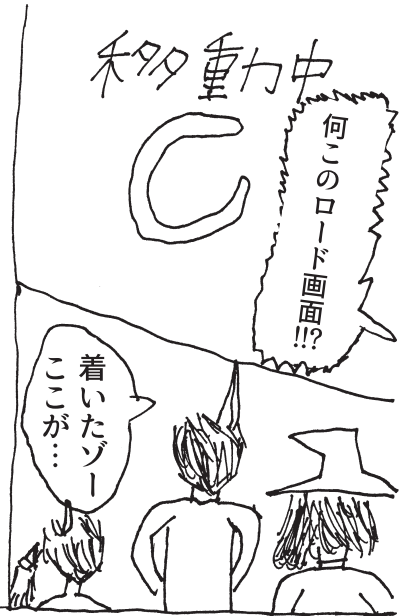 移動中
何このロード画面!!?
着いたゾー
ここが…